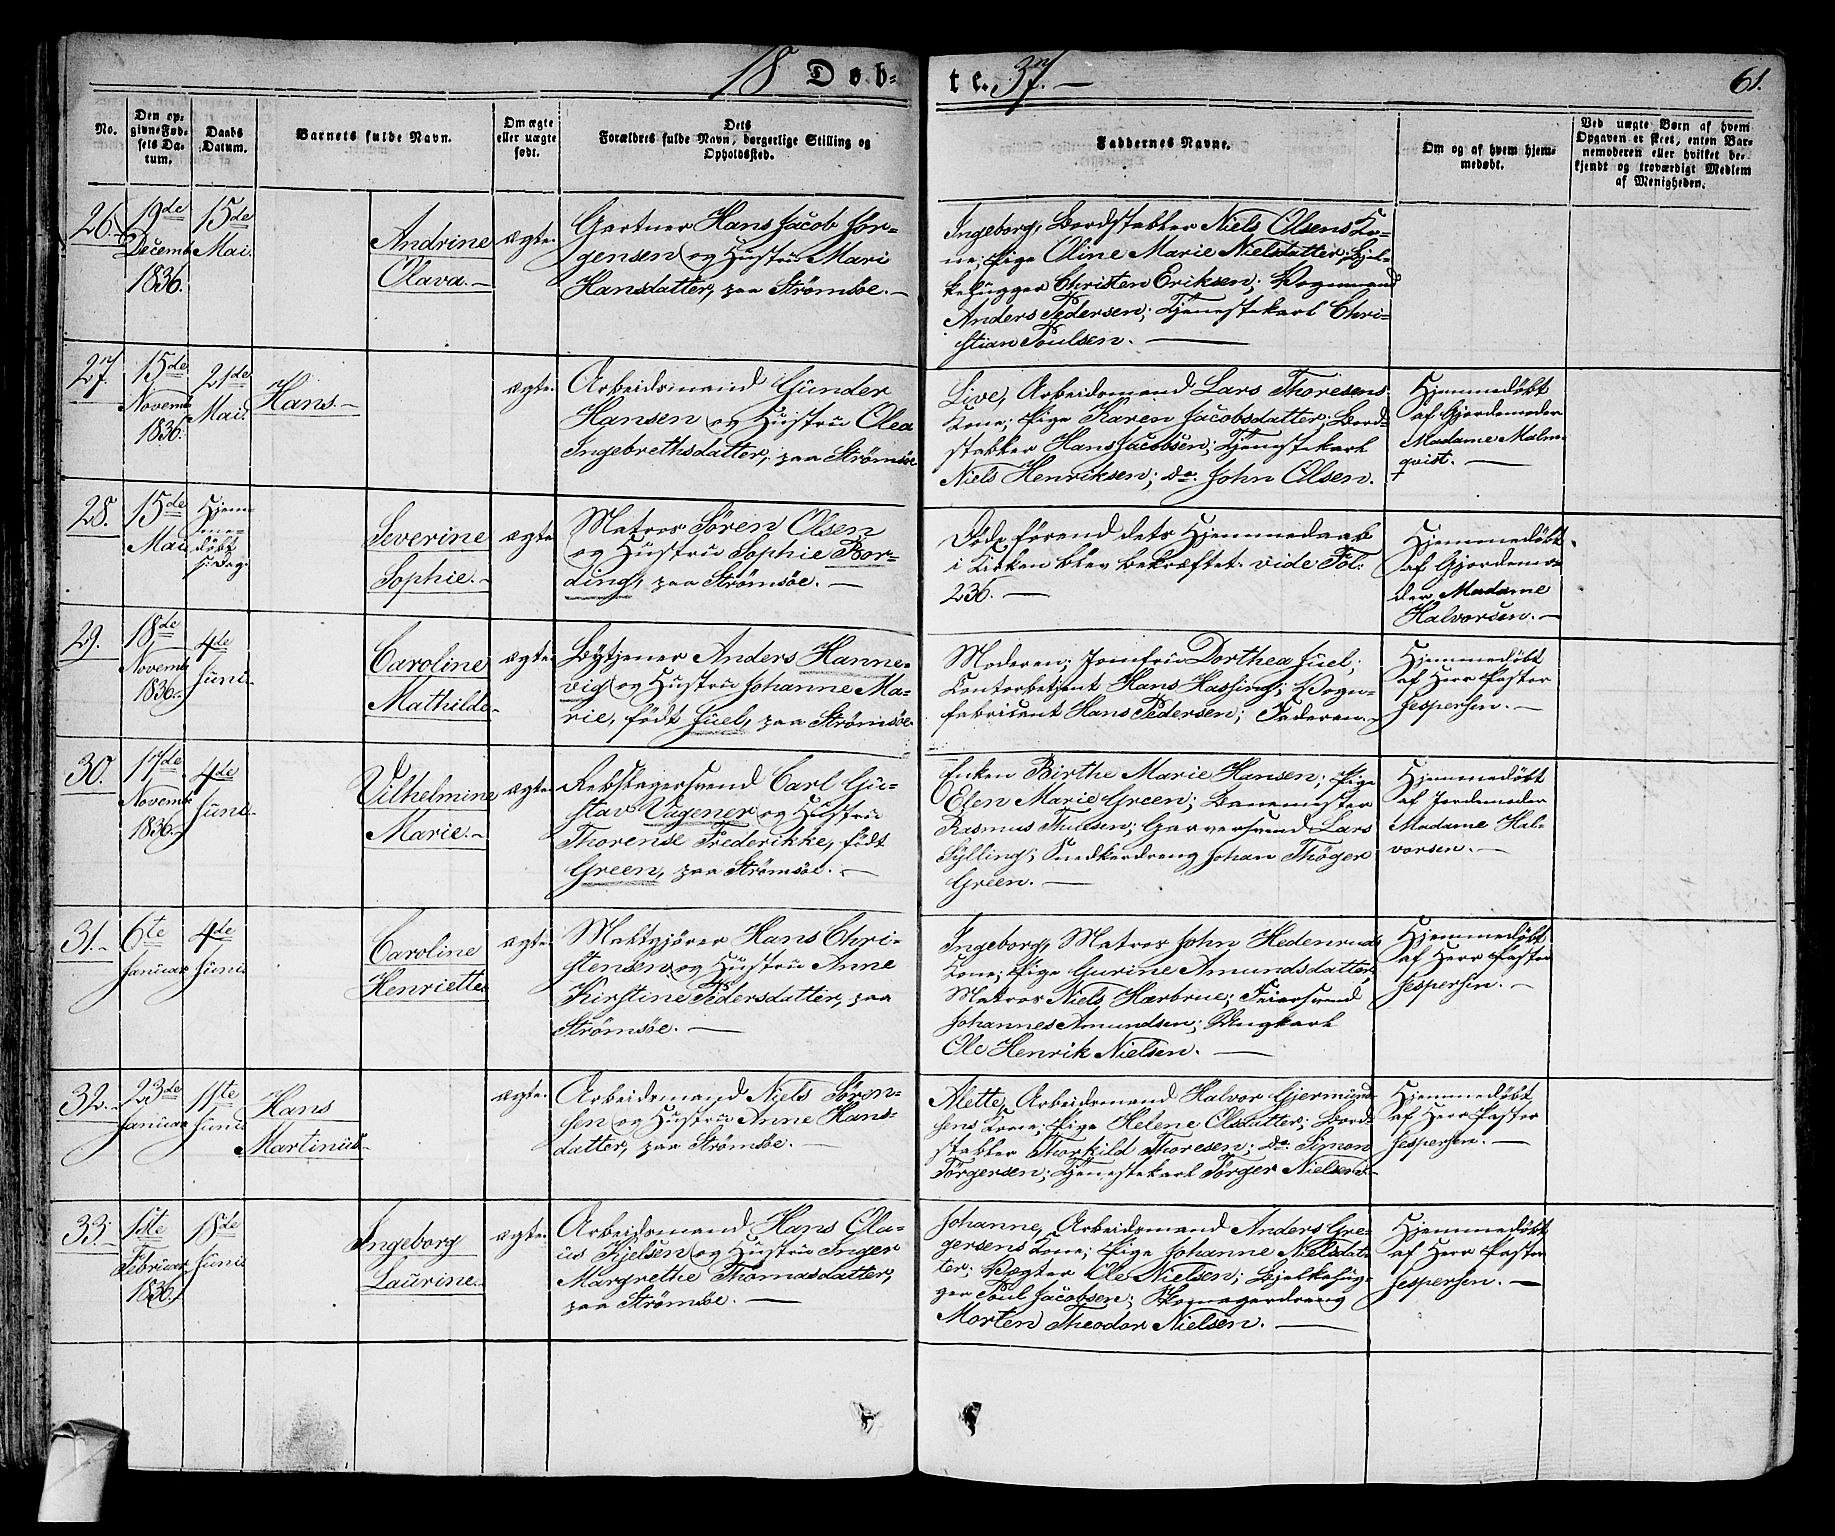 18 Døb-
te. 37. —
61.
No.
Den op-
givne Fød-
sels Da-
tum.
Daabs
Datum.
Barnets fulde Navn.
Om ægte
eller uægte
født.
Dets
Forældres fulde Navn, borgerlige Stilling og
Opholdssted.
Faddernes Navne.
Om og af hvem hjem-
medøbt.
Ved uægte Børn af hvem
Opgaven er skeet, enten Bar-
nemoderen eller hvilket be-
kjendt og troværdigt Medlem
af Menigheden.
26.
19de
Decemb.
1836.
15de
Mai.
Andrine
Olava.—
ægte.
Gartner Hans Jacob Jør-
gensen og Hustru Mari
Hansdatter, paa Strømsøe.—
Ingeborg, Bordstabler Niels Olsens Ko-
ne; Pige Oline Marie Nielsdatter; Bjel-
kehugger Christen Eriksen; Vognmand
Anders Pedersen; Tjenestekarl Chri-
stian Poulsen. —
27.
15de
Novemb.
1836.
21de
Mai.
Hans.—
ægte.
Arbeidsmand Gunder
Hansen og Hustru Olea
Ingebrethsdatter, paa Strømsøe
Live, Arbeidsmand Lars Thoresens
Kone; Pige Karen Jacobsdatter; Bord-
stabler Hans Jacobsen; Tjenestekarl
Niels Henriksen; do. John Olsen.
Hjemmedøbt
af Gjordemoder
Madame Malm-
qvist. —
28.
15de
Mai
Hjem-
me-
døbt
s: Dag.
Severine
Sophie.—
ægte
Matros Søren Olsen
og Hustru Sophie Bor-
ding, paa Strømsøe. —
Døde førend dets Hjemmedaab
i Kirken blev bekræftet. vide Fol:
236. —
Hjemmedøbt
af Gjordemo-
der Madame
Halvorsen.—
29.
18de
Novemb.
1836.
4de
Juni.
Caroline
Mathilde.—
ægte.
Bytjener Anders Hanne-
vig og Hustru Johanne Ma-
rie, født Juel, paa Strømsøe.
Moderen; Jomfru Dorthea Juel;
Contorbetjent Hans Hassing; Vogn-
fabricant Hans Pedersen; Faderen.—
Hjemmedøbt
af Herr Pastor
Jespersen. —
30.
17de
Novemb.
1836.
4de
Juni.
Vilhelmine
Marie.—
ægte.
Rebslagersvend Carl Gu-
stav Vagener og Hustru
Thorense Frederikke, født
Green, paa Strømsøe. —
Enken Birthe Marie Hansen; Pige
Elen Marie Green; Banemester
Rasmus Thuesen; Garversvend Lars
Sylling; Snedkerdreng Johan Thøger
Green. —
Hjemmedøbt
af Jordemoder
Madame Hal-
vorsen.—
31.—
6te
Januar
4de
Juni
Caroline
Henriette.
ægte.
Møllgjører Hans Chri-
stensen og Hustru Anne
Kirstine Pedersdatter, paa
Strømsøe. —
Ingeborg, Matros John Hedenruds
Kone; Pige Gurine Amundsdatter;
Matros Niels Hærbrue; Feiersvend
Johannes Amundsen; Ungkarl
Ole Henrik Nielsen. —
Hjemmedøbt
af Herr Pastor
Jespersen. —
32.—
23de
Januar
11te
Juni
Hans
Martinus.—
ægte.
Arbeidsmand Niels Søren-
sen og Hustru Anne Hans-
datter, paa Strømsøe. —
Alette, Arbeidsmand Halvor Gjermund-
sens Kone; Pige Helene Olsdatter; Bord-
stabler Thorkild Thoresen; do. Simon
Törgersen; Tjenestekarl Törger Nielsen.
Hjemmedøbt
af Herr Pastor
Jespersen. —
33.
1ste
Februar
1836.
18de
Juni
Ingeborg
Laurine.—
ægte.
Arbeidsmand Hans Ola-
us Kjelsen og Hustru Inger
Margrethe Thomasdatter,
paa Strømsøe. —
Johanne, Arbeidsmand Anders Gre-
gersens Kone; Pige Johanne Nielsdat-
ter; Vægter Ole Nielsen; Bjelkehug-
ger Poul Jacobsen;
Morten Theodor Nielsen. —
Hjemmedøbt
af Herr Pastor
Jespersen. —